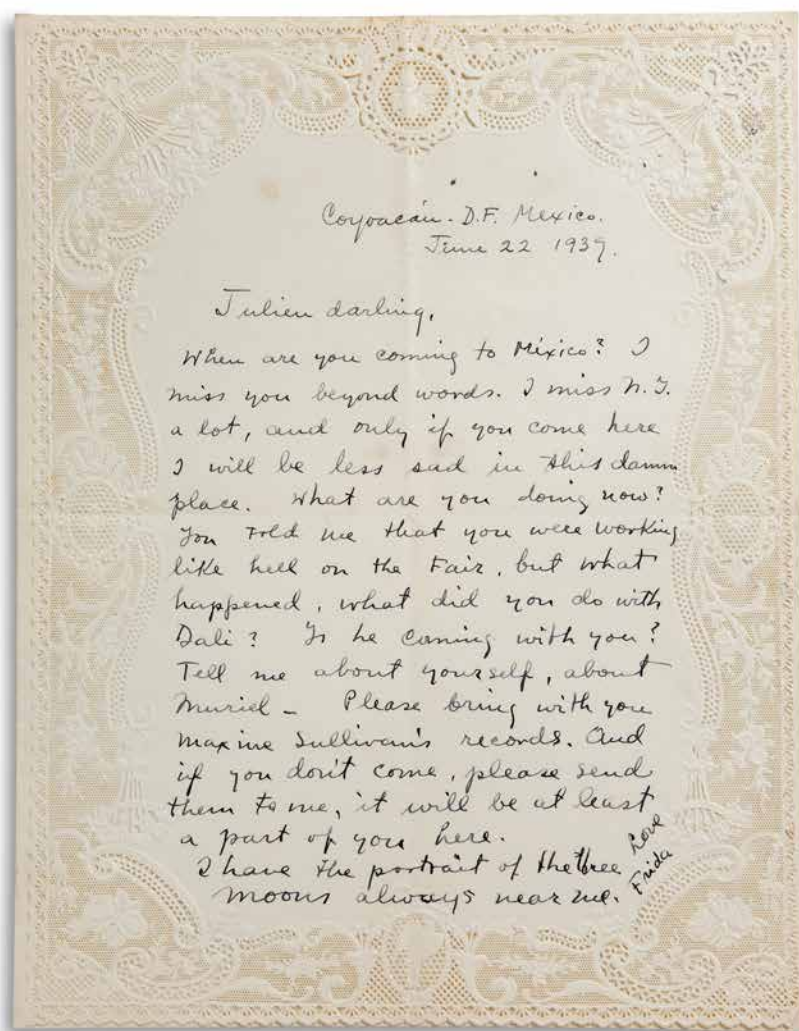 Coyoacán - D.F. Mexico.
June 22 1939.
Julien darling,
When are you coming to México? I
miss you beyond words. I miss N.Y.
a lot, and only if you come here
I will be less sad in this damn
place. What are you doing now?
You told me that you were working
like hell on the Fair, but what
happened, what did you do with
Dali? Is he coming with you?
Tell me about yourself, about
Muriel - Please bring with you
Maxine Sullivan's records. And
if you don't come, please send
them to me, it will be at least
a part of you here.
I have the portrait of the three
moons always near me.
Love
Frida